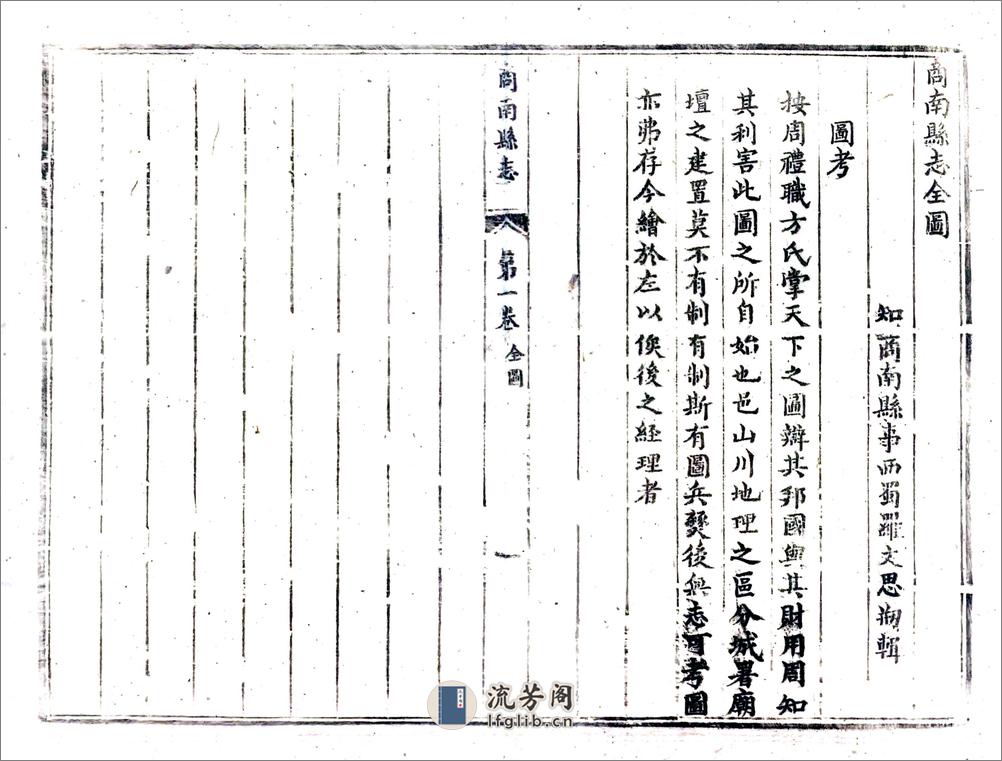 商南縣志全圖
知商南縣事西蜀羅文思 輯
圖考
按周禮職方氏掌天下之圖辯其邦國與其財用周知
其利害此圖之所自始也邑山川地理之區分城署廟
壇之建置莫不有制有制斯有圖兵燹後無志可考圖
亦弗存今繪於左以俟後之経理者
商南縣志
第一卷
全圖
一
流芳阁
lfglib.cn